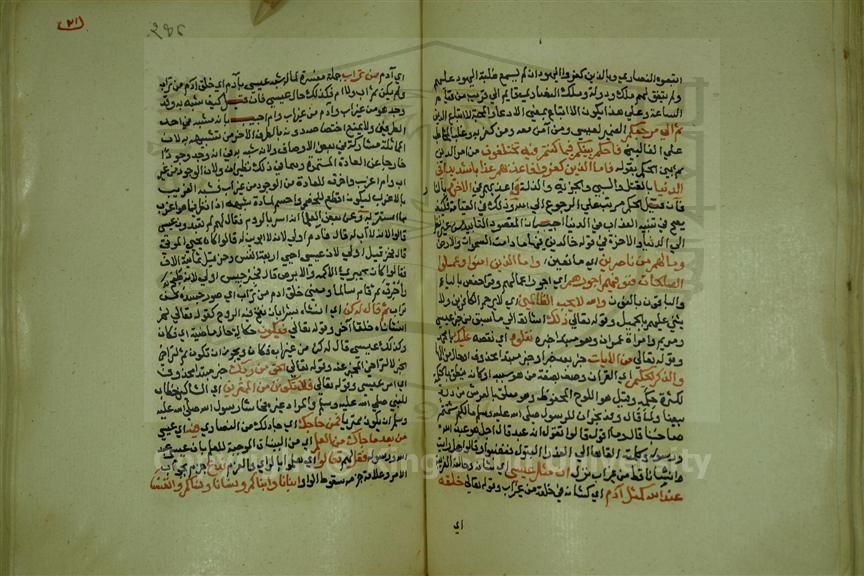 اتبعوه النصارى وبالذين كفروا اليهود اذ لم يسمع غلبة اليهود عليهم
ولم يتفق لهم ملك ودولة وملك النصارى قائم الى قرب من قيام
الساعة وعلى هذا يكون الاتباع بمعنى الادعاء والمحبة لا اتباع الدين
ثم الي مرجعكم الضمير لعيسى ومن آمن معه ومن كفر به وغلب المخاطب
على الغائبين فاحكم بينكم فيما كنتم فيه تختلفون من امر الدين
ثم بين الحكم بقوله فاما الذين كفروا فاعذبهم عذابا شديدا في
الدنيا بالقتل والسبي والجزية والذلة و اعذبهم في الاخرة بالنار
فان قيل الحكم مرتب على الرجوع الى الله وذلك في القيامة فكيف
يصح في تبيينه العذاب في الدنيا اجيب بان المقصود التابيد من غير نظر
الى الدنيا والاخرة في قوله خالدين فيها ما دامت السموات والارض
وما لهم من ناصرين اي مانعين واما الذين آمنوا وعملوا
الصالحات فنوفيهم اجورهم اي اجور اعمالهم وقرأ حفص بالياء
والباقون بالنون والله لا يحب الظالمين اي لا يرحم الكافرين ولا
يثني عليهم بالجميل وقوله تعالى ذلك اشارة الى ما سبق من خبر عيسى
ومريم وامرأة عمران وهو مبتدا خبره نتلوه اي نقصه عليك يا محمد
وقوله تعالى من الآيات خبر بعد خبر او خبر مبتدا محذوف او حال من الهاء
والذكر الحكيم اي القرآن وصف بصفة من هو سببه او كانه ينطق بالحكمة
لكثرة حكمه وقيل هو اللوح المحفوظ وهو معلق بالعرش من درة
بيضا ولما قال وفد نجران للرسول صلى الله عليه وسلم مالك شتمت
صاحبنا قال وما اقول قالوا تقول انه عبد قال اجل هو عبد الله
ورسوله وكلمته القاها الى العذراء البتول فغضبوا وقالوا هل رايت
انسانا قط من غير اب نزل ان مثل عيسى اي شانه وحاله الغريب
عند الله كمثل آدم اي كشانه في خلقه من غير اب وقوله تعالى خلقه
اي
(٢١)
اي آدم من تراب جملة مفسرة لما له شبه عيسى بآدم اي خلق آدم من تراب
ولم يكن ثم اب ولا ام فكذلك حال عيسى فان قيل كيف شبه به وقد
وجد هو من غير اب وآدم من غير اب وام اجيب بانه مثيله في احد
الطرفين ولا يمنع اختصاصه دونه بالطرف الآخر من تشبيهه به لان
المماثلة مشاركة في بعض الاوصاف ولانه شبه به في انه وجد وجودا
خارجا عن العادة المستمرة وهما في ذلك نظيران ولان الوجود من غير
اب وام اغرب واخرق للعادة من الوجود من غير اب فشبه الغريب
بالاغرب ليكون اقطع للخصم واحسم لمادة شبهته اذا نظر فيما هو اغرب
مما استغربه وعن بعض العلماء انه اسر بالروم فقال لهم لم تعبدون عيسى
قالوا لانه لا اب له قال فآدم اولى لانه لا ابوين له قالوا كان يحيي الموتى
قال فحزقيل اولى لان عيسى احيى اربعة انفس وحزقيل ثمانية آلاف
فقالوا كان يبرئ الاكمه والابرص قال فجرجيس اولى لانه طبخ
واحرق ثم قام سالما ومعنى خلق آدم من تراب اي صور جسده من
تراب ثم قال له كن اي انشأه بشرا بان نفخ فيه الروح كقوله تعالى ثم
انشأناه خلقا آخر وقوله تعالى فيكون حكاية حال ماضية اي فكان
وكذلك عيسى قال له كن من غير اب فكان ويجوز ان تكون ثم لتراخي
الخبر لا لتراخي المخبر عنه وقوله تعالى الحق من ربك خبر مبتدا محذوف
اي امر عيسى وقوله تعالى فلا تكونن من الممترين اي الشاكين خطاب
للنبي صلى الله عليه وسلم والمراد غيره لحاشا رسول الله صلى الله عليه
وسلم ان يكون ممتريا فمن حاجك اي جادلك من النصارى فيه اي عيسى
من بعد ما جاءك من العلم اي من البينات الموجبة للعلم بان عيسى عبد
الله ورسوله فقل لهم تعالوا اي هلموا بالراي والعزم ندع جزم بجواب
الامر وعلامة جزمه سقوط الواو ابناءنا وابناءكم ونساءنا ونساءكم وانفسنا